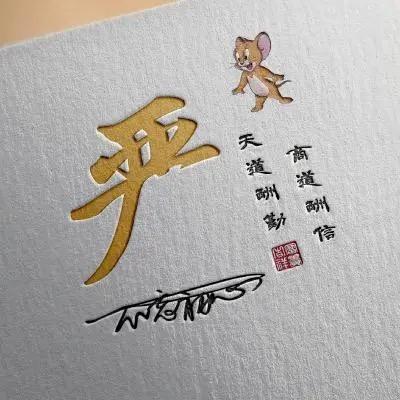 严
天道酬勤
商道酬信